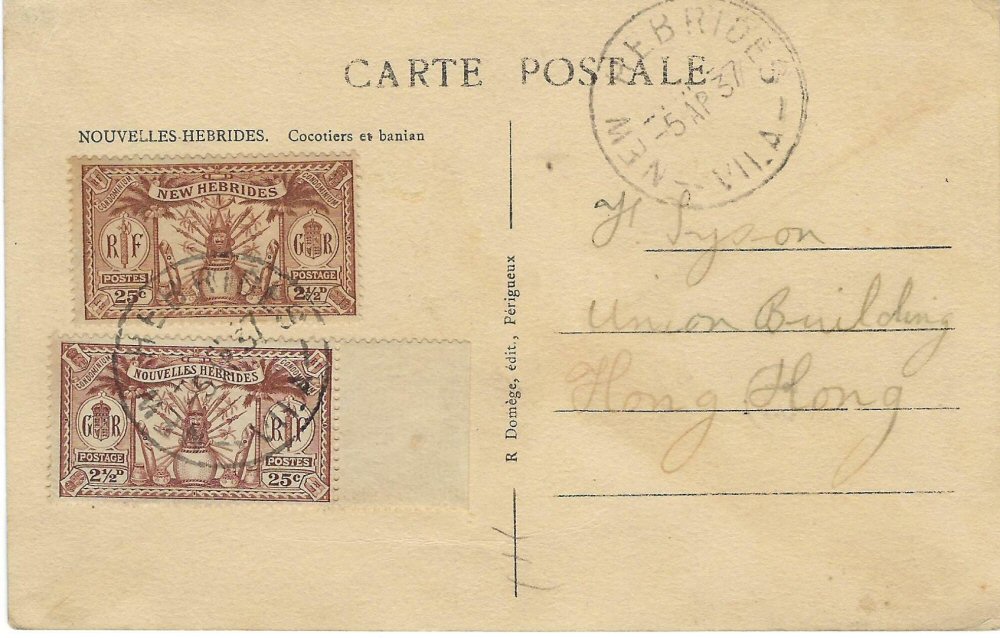 CARTE POSTALE
NOUVELLES-HEBRIDES. Cocotiers et banian
NEW HEBRIDES
-5 AP 37
VILA
CONDOMINIUM CONDOMINIUM
NEW HEBRIDES
R F G R
POSTES POSTAGE
25c 2½D
CONDOMINIUM CONDOMINIUM
NOUVELLES HÉBRIDES
G R R F
POSTAGE POSTES
2½D 25c
R Domège, édit., Périgueux
H. Tyson
Union Building
Hong Kong